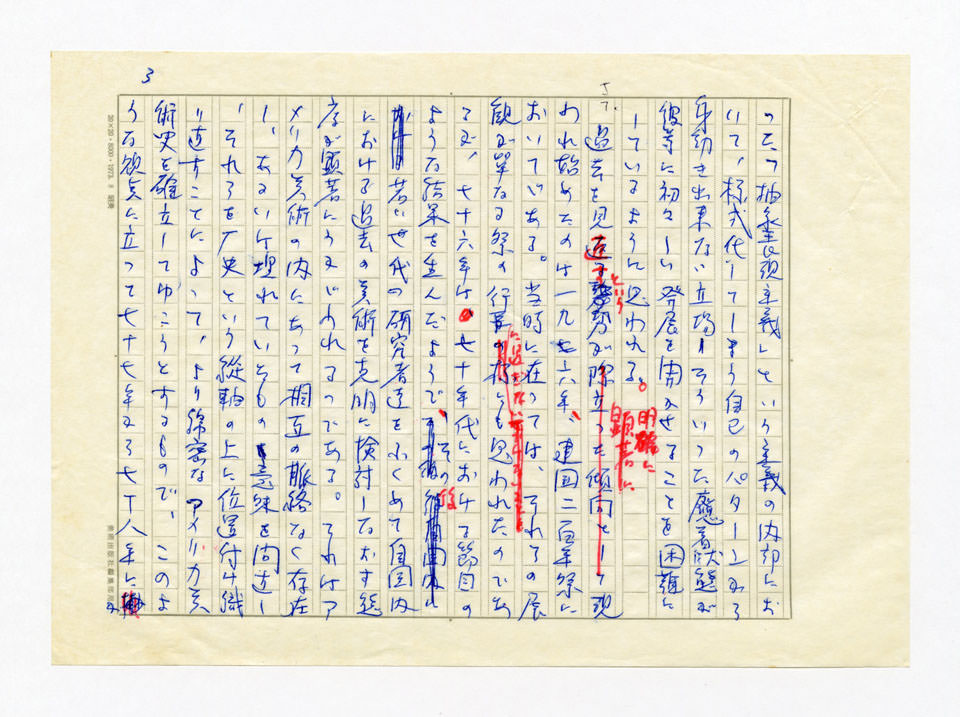 3
った「抽象表現主義」という主義の内部にお
いて、様式化してしまう自己のパターンから
身動き出来ない立場、そういった膠着状態が
彼等に初々しい発展を開かせることを困難に
しているように思われる。
過去を見返すという姿勢が明確に顕著に際立った傾向として現
われ始めたのは一九七六年、建国二百年祭に
おいてである。当時に在っては、それらの展
観が単なる祭の行事に過ぎないとも思われたのであ
るが、七十六年は七十年代における節目の
ような結果を生んだようで、その後
若い世代の研究者達をふくめて自国内
における過去の美術を克明に検討しなおす態
度が顕著にうかがわれるのである。それはア
メリカ美術の内にあって相互の脈絡なく存在
し、あるいは埋れていたものの意味を問返し
、それらを歴史という縦軸の上に位置付け織
り直すことによって、より綿密なアメリカ美
術史を確立してゆこうとするもので、このよ
うな観点に立って七十七年から七十八年にか
20×20・8000・1973.